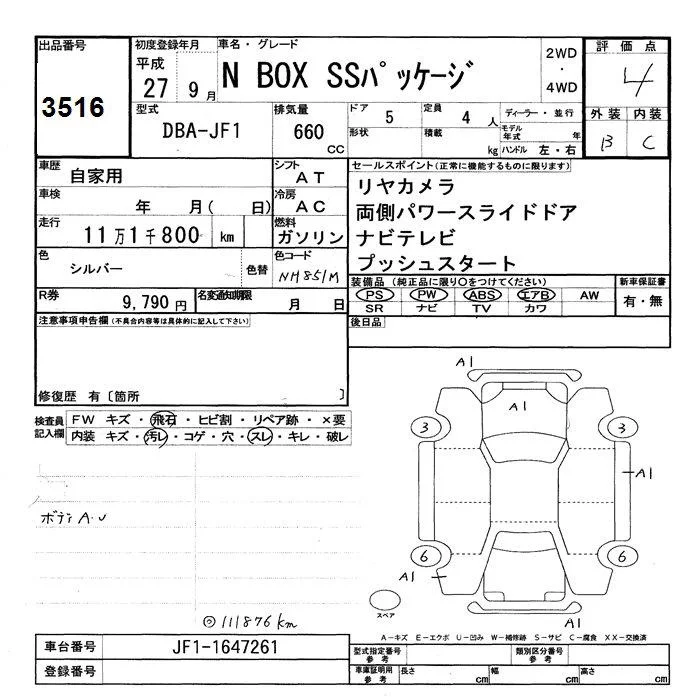 出品番号 初度登録年月 車名・グレード 評価点
3516
平成 27 9月
N BOX SSパッケージ
2WD ・ 4WD
4
型式 排気量 ドア 定員 ディーラー・並行 外装 内装
DBA-JF1 660 CC 5 4人 B C
形状 積載 kg モデル年式 年 ハンドル 左・右
車歴 自家用 シフト AT
セールスポイント(正常に機能するものに限ります)
リヤカメラ
車検 年 月( 日) 冷房 AC
両側パワースライドドア
走行 11万1千800 km 燃料 ガソリン
ナビテレビ
プッシュスタート
色 シルバー 色替 色コード NH851M
装備品 (純正品に限り○をつけてください) 新車保証書
PS PW ABS エアB AW 有・無
SR ナビ TV カワ
R券 9,790円 名変通知期限 月 日
後日品
注意事項申告欄(不具合内容等は具体的に記入して下さい)
修復歴 有〔箇所 〕
検査員記入欄
FW キズ・飛石・ヒビ割・リペア跡・×要
内装 キズ・汚レ・コゲ・穴・スレ・キレ・破レ
ボディA.U
◎111876km
A1
A1
3 3
A1
6 6
A1
A1
スペア
A-キズ E-エクボ U-凹み W-補修跡 S-サビ C-腐食 XX-交換済
車台番号 JF1-1647261
型式指定番号 参考 類別区分番号 参考
登録番号
車庫証明用 参考 長さ cm 幅 cm 高さ cm